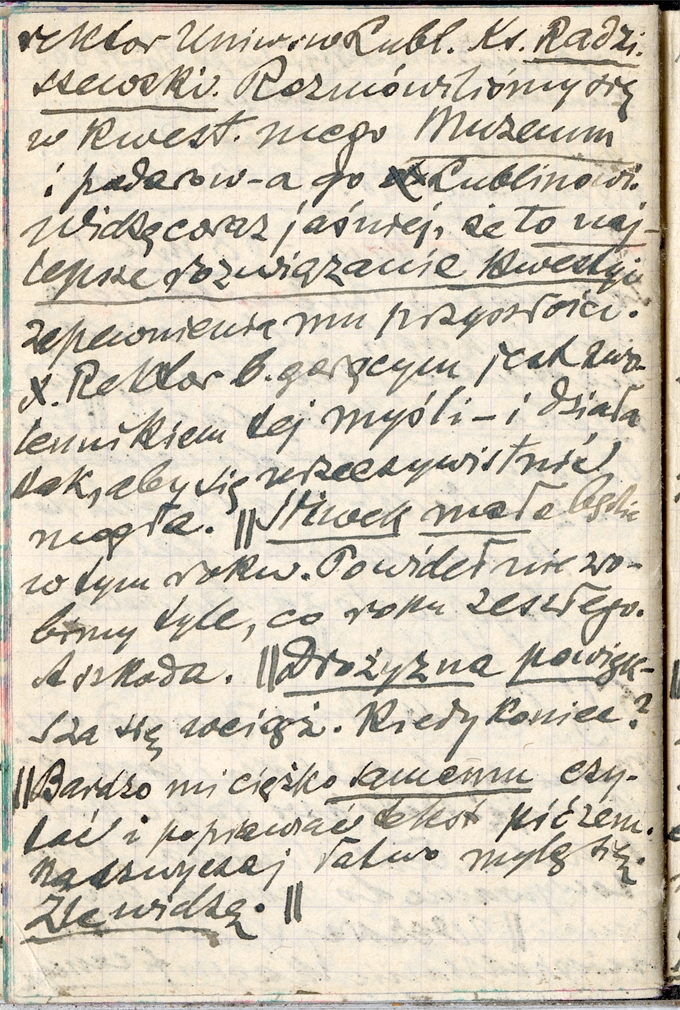 rektor Uniw. w Lubl. Ks. Radzi-
szewski. Rozmówiliśmy się
w kwest. mego Muzeum
i podarow-a go Lublinowi.
Widzę coraz jaśniej, że to naj-
lepsze rozwiązanie kwestyi
zapewnienia mu przyszłości.
X. Rektor b. gorącym jest zwo-
lennikiem tej myśli – i działa
tak, aby się urzeczywistnić
mogła. || Śliwek mało będzie
w tym roku. Powideł nie zro-
bimy tyle, co roku zeszłego.
A szkoda. || Drożyzna powięk-
sza się wciąż. Kiedy koniec?
|| Bardzo mi ciężko samemu czy-
tać i poprawiać tekst pióżem.
Nadzwyczaj łatwo mylę się.
Źle widzę. ||